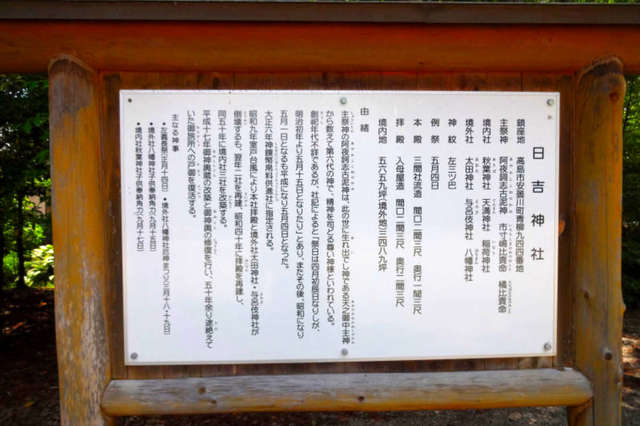 日吉神社
鎮座地 高島市安曇川町青柳九四四番地
主祭神 阿夜訶志古泥神 市寸嶋比賣命 橘比賣命
境内社 秋葉神社 天満神社 稲荷神社
境外社 太田神社 与呂伎神社 八幡神社
神紋 左三ツ巴
例祭 五月四日
本殿 三間社流造 間口二間三尺 奥行一間三尺
拝殿 入母屋造 間口二間三尺 奥行二間三尺
境内地 五六五九坪(境外地)三四八九坪
由緒
主祭神の阿夜訶志古泥神は、此の世に生れ出でし神である天之御中主神
から数えて第六代の神で、精神を司どる尊い神様といわれている。
創祀年代不詳であるが、社記によると「祭日は四月初辰日なりしが、
明治初年より五月十五日となりたり」とあり、またその後、昭和になり
五月一日となるも平成になり五月四日となった。
大正六年神饌幣帛料供進社に指定される。
昭和九年室戸台風により本社拝殿と境外社太田神社・与呂伎神社が
倒壊するも、翌年二社を再建、昭和四十年に拝殿を再建し、
同五十年に境内社三社を改築する。
平成十七年御神輿蔵の改築と御神輿の修復を行い、五十年余り途絶えて
いた御旅所への戸御を復活する。
主なる神事
・左義長祭(正月十四日) ・境外社八幡神社厄神まつり(三月十八・十九日)
・境外社八幡神社子供奉納角力(九月十五日)
・境内社秋葉神社子供奉納角力(九月十七日)